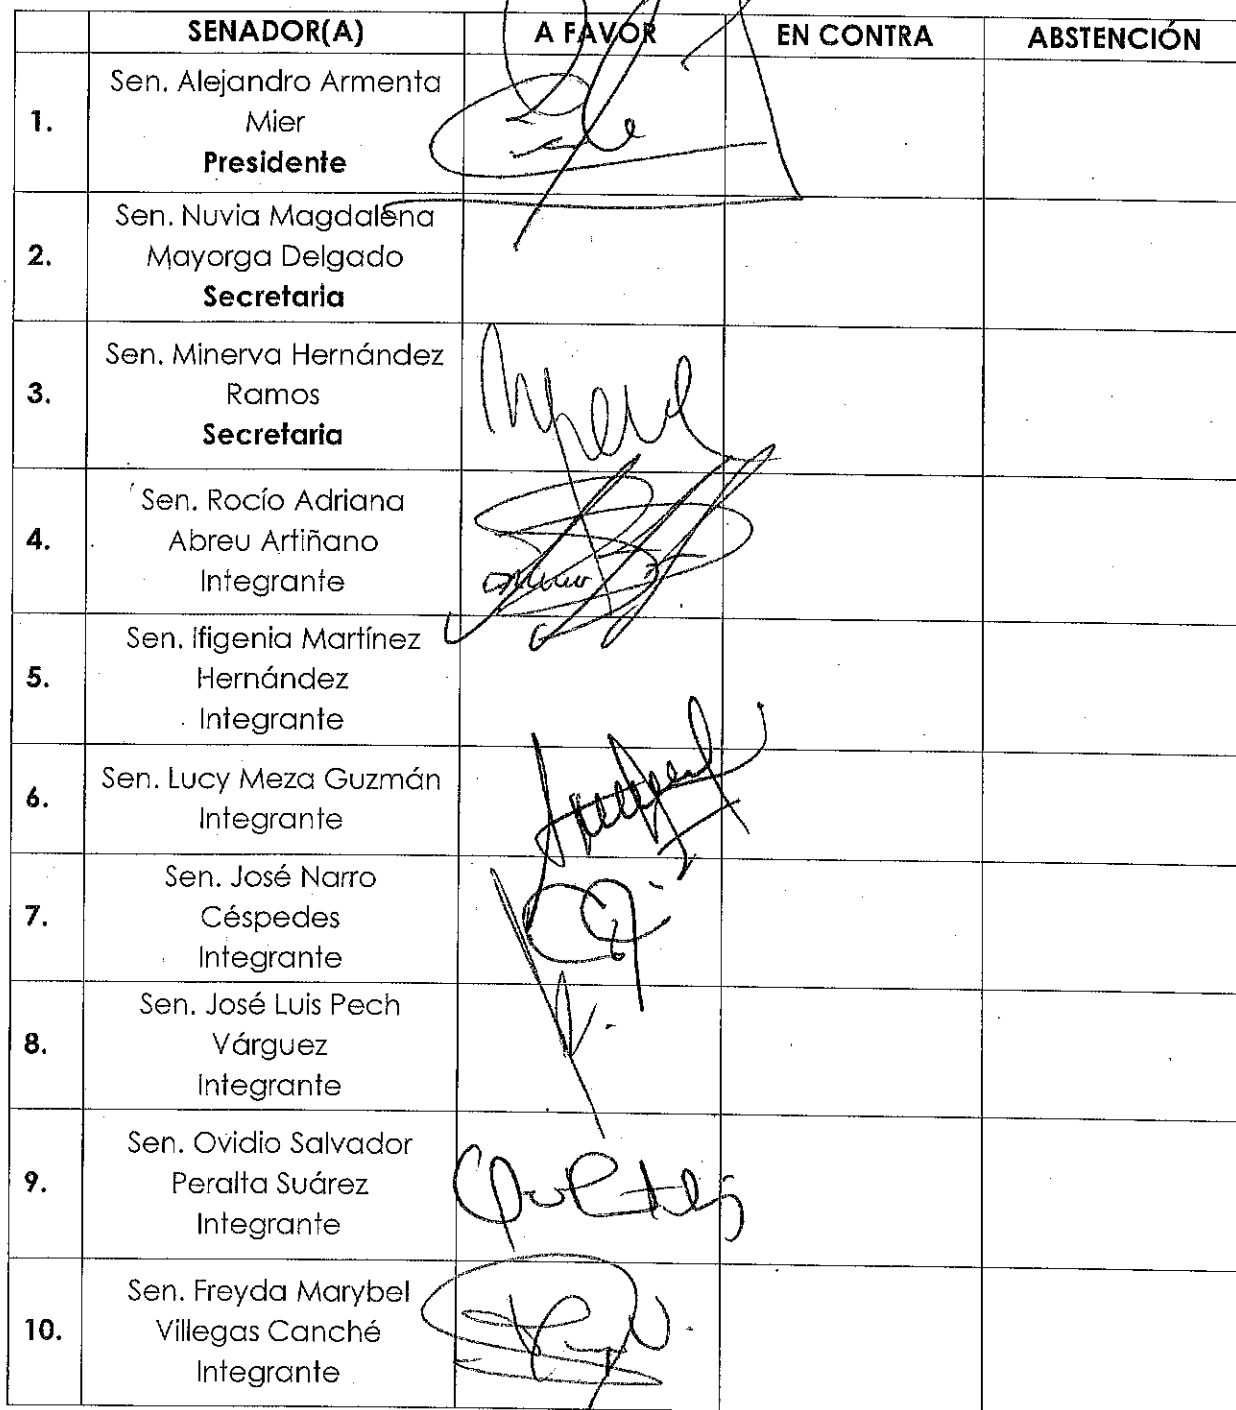 SENADOR(A) A FAVOR EN CONTRA ABSTENCIÓN
Sen. Alejandro Armenta
1. Mier
Presidente
Sen. Nuvia Magdalena
2. Mayorga Delgado
Secretaria
Sen. Minerva Hernández
3. Ramos
Secretaria
Sen. Rocío Adriana
4. Abreu Artiñano
Integrante
Sen. Ifigenia Martínez
5. Hernández
Integrante
Sen. Lucy Meza Guzmán
6.
Integrante
Sen. José Narro
7. Céspedes
Integrante
Sen. José Luis Pech
8. Várguez
Integrante
Sen. Ovidio Salvador
9. Peralta Suárez
Integrante
Sen. Freyda Marybel
10. Villegas Canché
Integrante